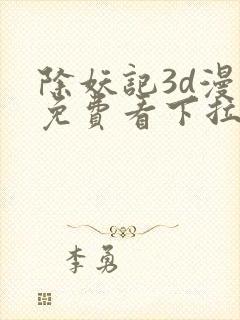 除妖記3d漫
免費看下拉
李勇